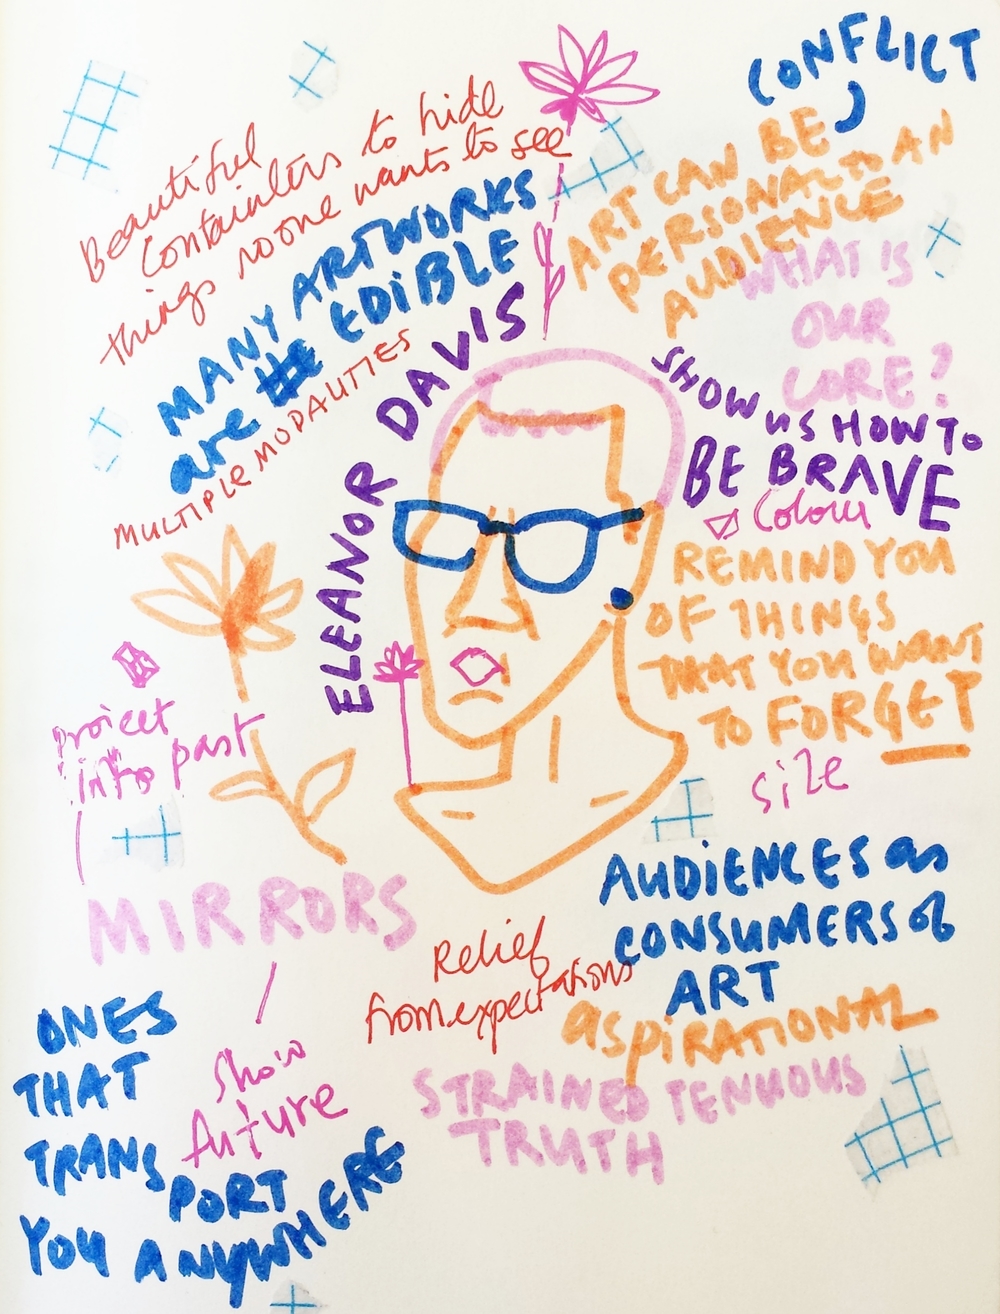 CONFLICT
Beautiful
Containers to hide
things no one wants to see
ART CAN BE
PERSONAL TO AN
AUDIENCE
MANY ARTWORKS
are EDIBLE
MULTIPLE MODALITIES
ELEANOR DAVIS
WHAT IS
OUR
CORE?
SHOW US HOW TO
BE BRAVE
Colour
REMIND YOU
OF THINGS
THAT YOU WANT
TO FORGET
size
project
into past
MIRRORS
AUDIENCES as
CONSUMERS of
ART
Relief
from expectations
aspiRATIONAL
STRAINED TENUOUS
TRUTH
ONES
THAT
TRANS PORT
YOU ANYWHERE
Show